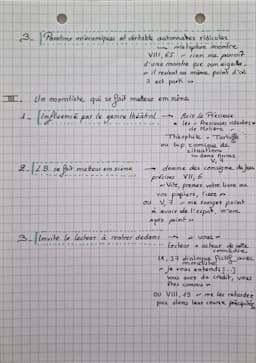 3. Pantins mécaniques et véritable automates ridicules
→ métaphore montre
VIII, 65 « rien ne paroît
d'une montre que son aiguille
« il revient au même point d'où
il est parti »
III. Un moraliste, qui se fait metteur en scène
1. Influencé par le genre théâtral → Acis le Précieux
« les « Précieuses ridicules »
de Molière
Théophile - Tartuffe
ou bcp comique de
situations
→ dans Arrias
V, 9
2. L.B. se fait metteur en scène → donne des consigne de jeu
précises VII, 6
« Vite, prenez votre livre ou
vos papiers, lisez »
ou V, 7 « ne songez point
à avoir de l'esprit, n'en
ayez point »
3. Invite le lecteur à rentrer dedans → « vous »
lecteur = acteur de cette
comédie
IX, 37 dialogue fictif avec
« je vous entends [...]
vous avez du crédit, vous
êtes commun »
ou VIII, 19 « ne les retardez
pas dans leur course précipitée »